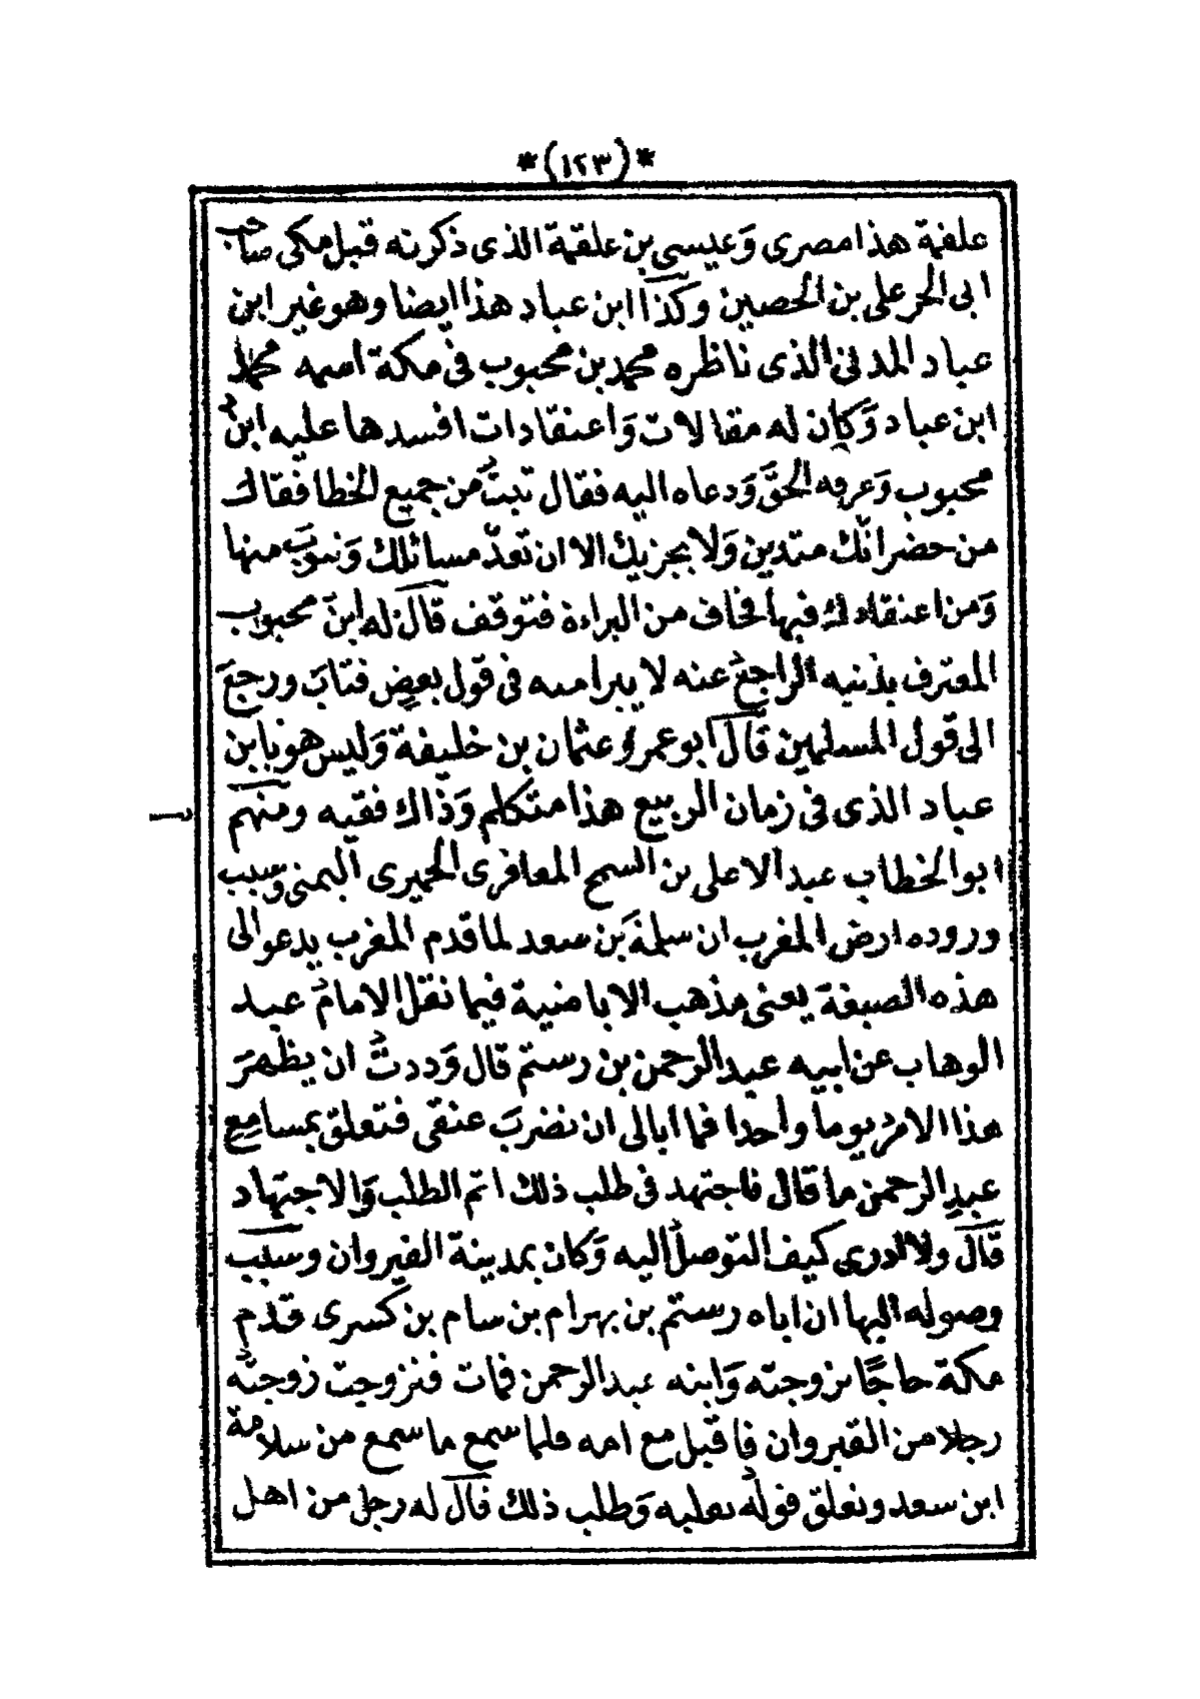 *(١٢٣)*
علقمة هذا مصرى وَعيسى بن علقمة الذى ذكرته قبل مكى صاحب
ابى الحر على بن الحصين وكذا ابن عباد هذا ايضا وهو غير ابن
عباد المدنى الذى ناظره محمد بن محبوب فى مكة اسمه محمد
ابن عباد وَكان له مقالات وَاعتقادات افسدها عليه ابن
محبوب وَعرفه الحقَّ وَدعاه اليه فقال تبتُ من جميع الخطا فقال
من حضر انّك متدين وَلا يجزيك الا ان تعدّ مسائلك وَتتوبَ منها
وَمن اعتقادك فيها فخاف من البراءة فتوقف قال له ابن محبوب
المعترف بذنبه الراجعُ عنه لا يبرا منه فى قول بعضٍ فتابَ ورجعَ
الى قول المسلمين قال ابو عمرو عثمان بن خليفة وَليس هو بابن
عباد الذى فى زمان الربيع هذا متكلم وَذاك فقيه ومنهم
ابو الخطاب عبد الاعلى بن السمح المعافرى الحميرى اليمنى وَسبب
وروده ارض المغرب ان سلمة بن سعد لما قدم المغرب يدعو الى
هذه الصبغة يعنى مذهب الاباضية فيما نقل الامامُ عبد
الوهاب عن ابيه عبد الرحمن بن رستم قال وَددتُ ان يظهرَ
هذا الامر يوما واحدا فما ابالى ان تضربَ عنقى فتعلق بمسامِعِ
عبدِ الرحمن ما قال فاجتهد فى طلب ذلك اتم الطلب وَالاجتهاد
قال ولا ادرى كيف التوصلُ اليه وَكان بمدينة القيروان وسبب
وصوله اليها ان اباه رستم بن بهرام بن سام بن كسرى قدم
مكة حاجًّا بزوجته وَابنه عبد الرحمن فمات فتزوجت زوجتُه
رجلا من القيروان فاقبل مع امه فلما سمع ما سمع من سلامة
ابن سعد وتعلق قولُه بقلبه وَطلب ذلك قال له رجل من اهل